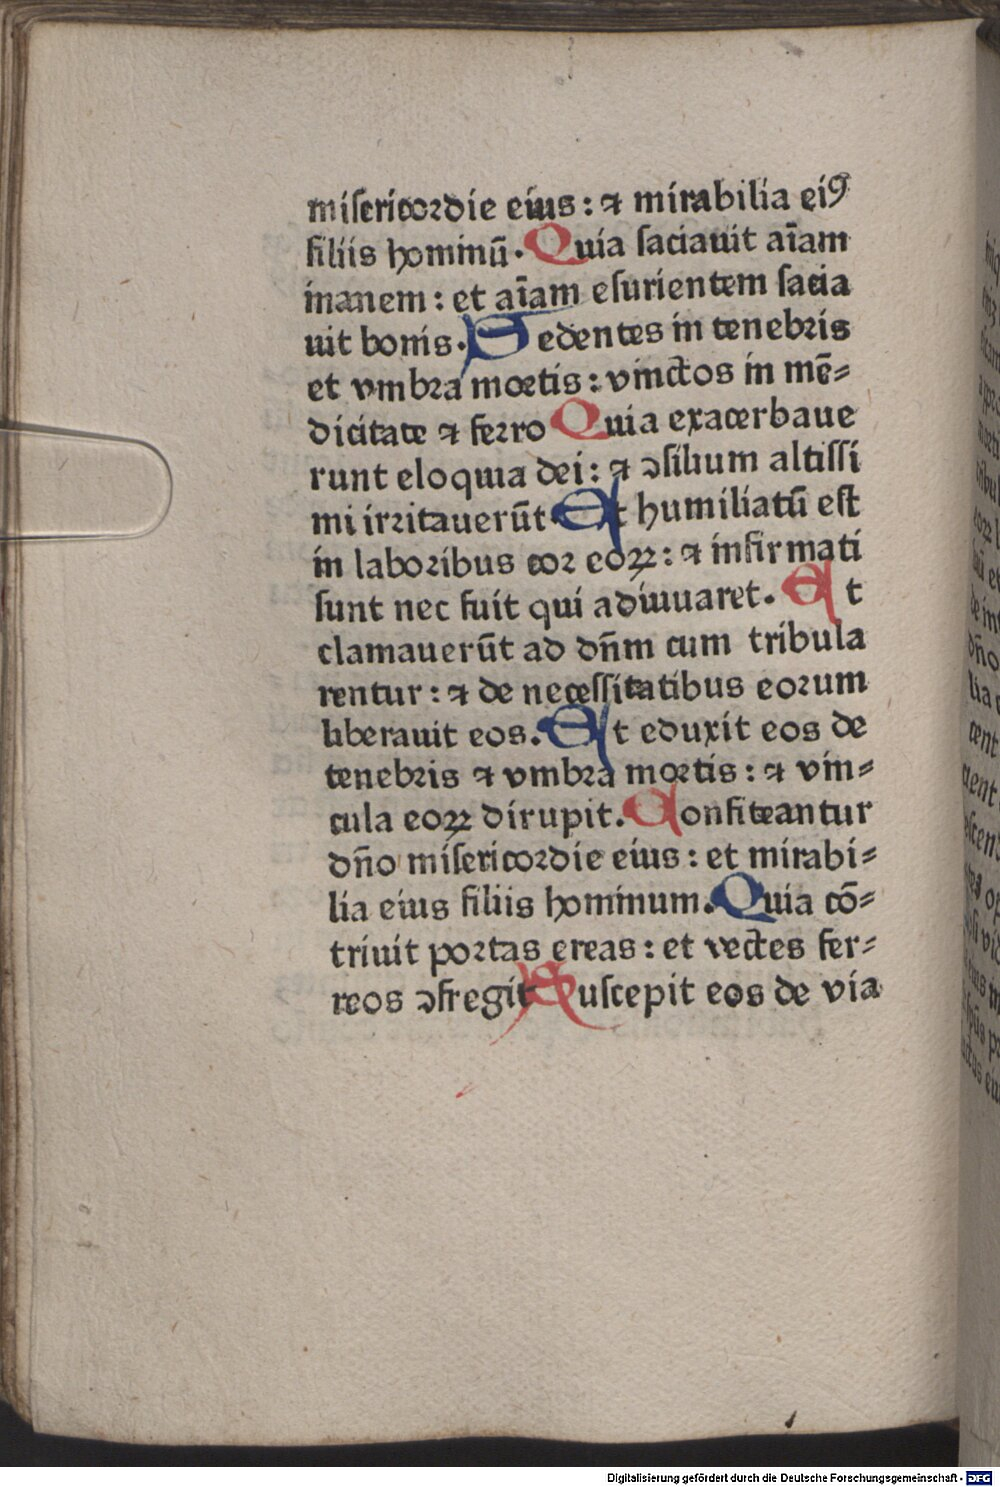 miſericordie eius : ⁊ mirabilia eiꝰ
filiis hominū. Quia ſaciauit aīam
inanem : et aīam eſurientem ſacia
uit bonis. Sedentes in tenebris
et vmbra mortis : vinctos in mē⸗
dicitate ⁊ ferro Quia exacerbaue
runt eloquia dei : ⁊ ↄſilium altiſſi
mi irritauerūt Et humiliatū eſt
in laboribus cor eoꝝ : ⁊ infirmati
ſunt nec fuit qui adiuuaret. Et
clamauerūt ad dn̄m cum tribula
rentur : ⁊ de neceſſitatibus eorum
liberauit eos. Et eduxit eos de
tenebris ⁊ vmbra mortis : ⁊ vin⸗
cula eoꝝ dirupit. Confiteantur
dn̄o miſericordie eius : et mirabi⸗
lia eius filiis hominum. Quia cō⸗
triuit portas ereas : et vectes fer⸗
reos ↄfregit Suſcepit eos de via
Digitalisierung gefördert durch die Deutsche Forschungsgemeinschaft - DFG